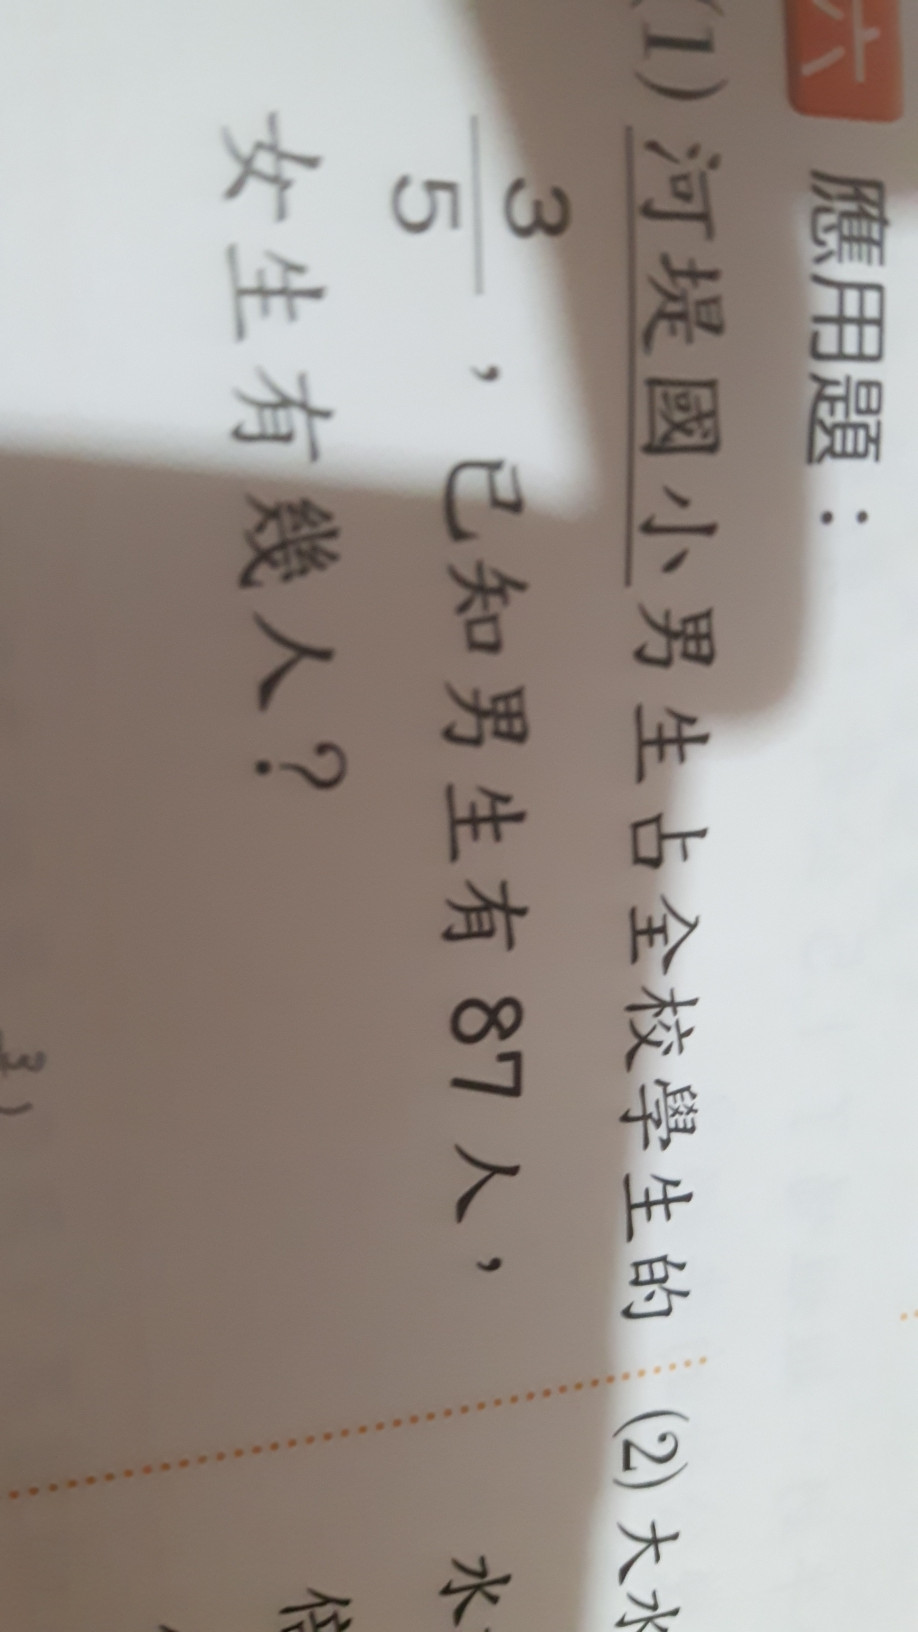 六 應用題：
(1) 河堤國小男生占全校學生的
3/5，已知男生有 87 人，
女生有幾人？
(2) 大水
水
倍